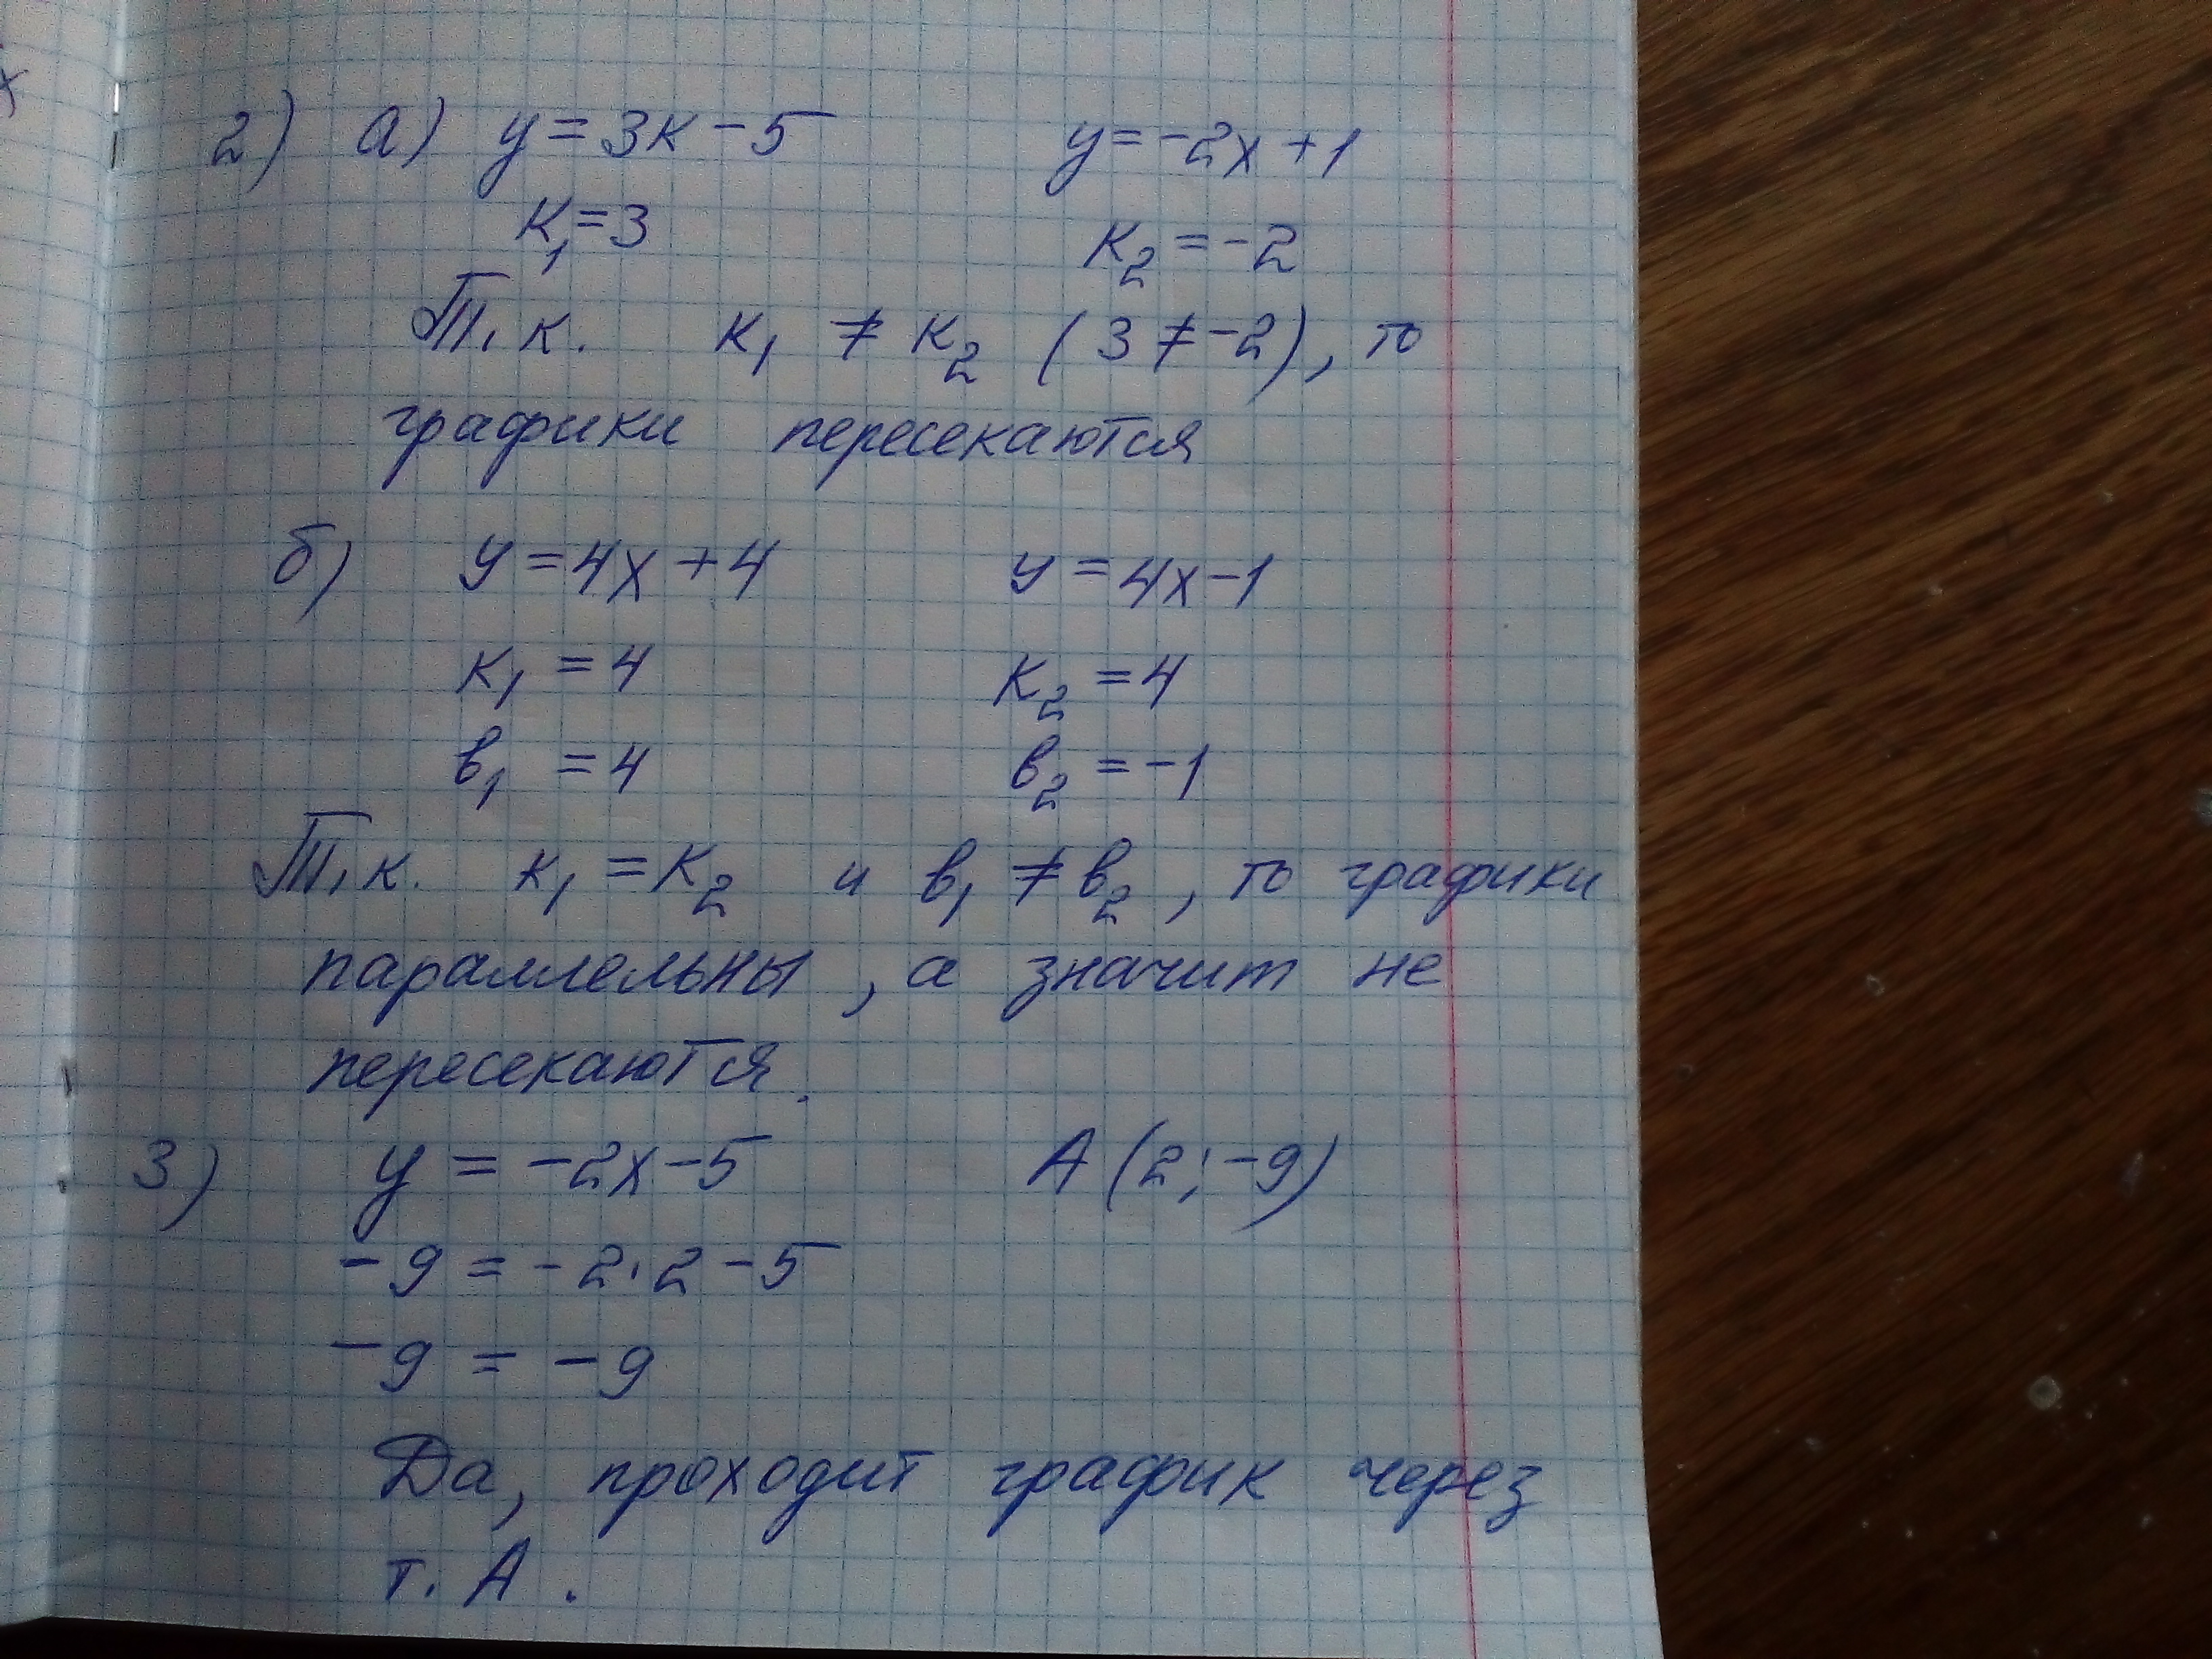 2) а) y = 3к - 5 y = -2x + 1
К₁ = 3 К₂ = -2
Т.к. к₁ ≠ к₂ (3 ≠ -2), то
графики пересекаются
б) y = 4x + 4 y = 4x - 1
к₁ = 4 к₂ = 4
в₁ = 4 в₂ = -1
Т.к. к₁ = к₂ и в₁ ≠ в₂, то графики
параллельны, а значит не
пересекаются.
3) y = -2x - 5 А (2; -9)
-9 = -2·2 - 5
-9 = -9
Да, проходит график через
т. А.